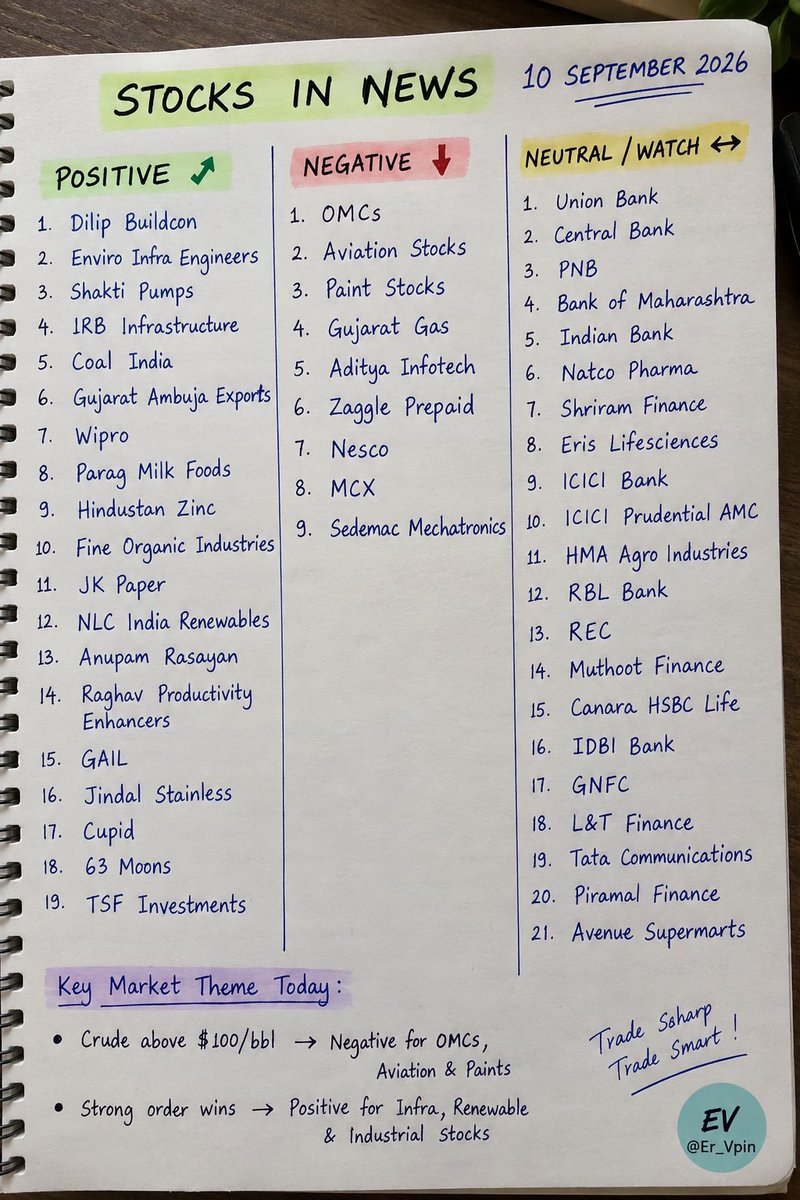 STOCKS IN NEWS
10 SEPTEMBER 2026
POSITIVE
1. Dilip Buildcon
2. Enviro Infra Engineers
3. Shakti Pumps
4. IRB Infrastructure
5. Coal India
6. Gujarat Ambuja Exports
7. Wipro
8. Parag Milk Foods
9. Hindustan Zinc
10. Fine Organic Industries
11. JK Paper
12. NLC India Renewables
13. Anupam Rasayan
14. Raghav Productivity
Enhancers
15. GAIL
16. Jindal Stainless
17. Cupid
18. 63 Moons
19. TSF Investments
NEGATIVE ↓
1. OMCs
2. Aviation Stocks
3. Paint Stocks
4. Gujarat Gas
5. Aditya Infotech
6. Zaggle Prepaid
7. Nesco
8. MCX
9. Sedemac Mechatronics
NEUTRAL / WATCH ↔
1. Union Bank
2. Central Bank
3. PNB
4. Bank of Maharashtra
5. Indian Bank
6. Natco Pharma
7. Shriram Finance
8. Eris Lifesciences
9. ICICI Bank
10. ICICI Prudential AMC
11. HMA Agro Industries
12. RBL Bank
13. REC
14. Muthoot Finance
15. Canara HSBC Life
16. IDBI Bank
17. GNFC
18. L&T Finance
19. Tata Communications
20. Piramal Finance
21. Avenue Supermarts
Key Market Theme Today:
• Crude above $100/bbl → Negative for OMCs,
Aviation & Paints
• Strong order wins → Positive for Infra, Renewable
& Industrial Stocks
Trade Ssharp
Trade Smart !
EV
@Er_Vpin